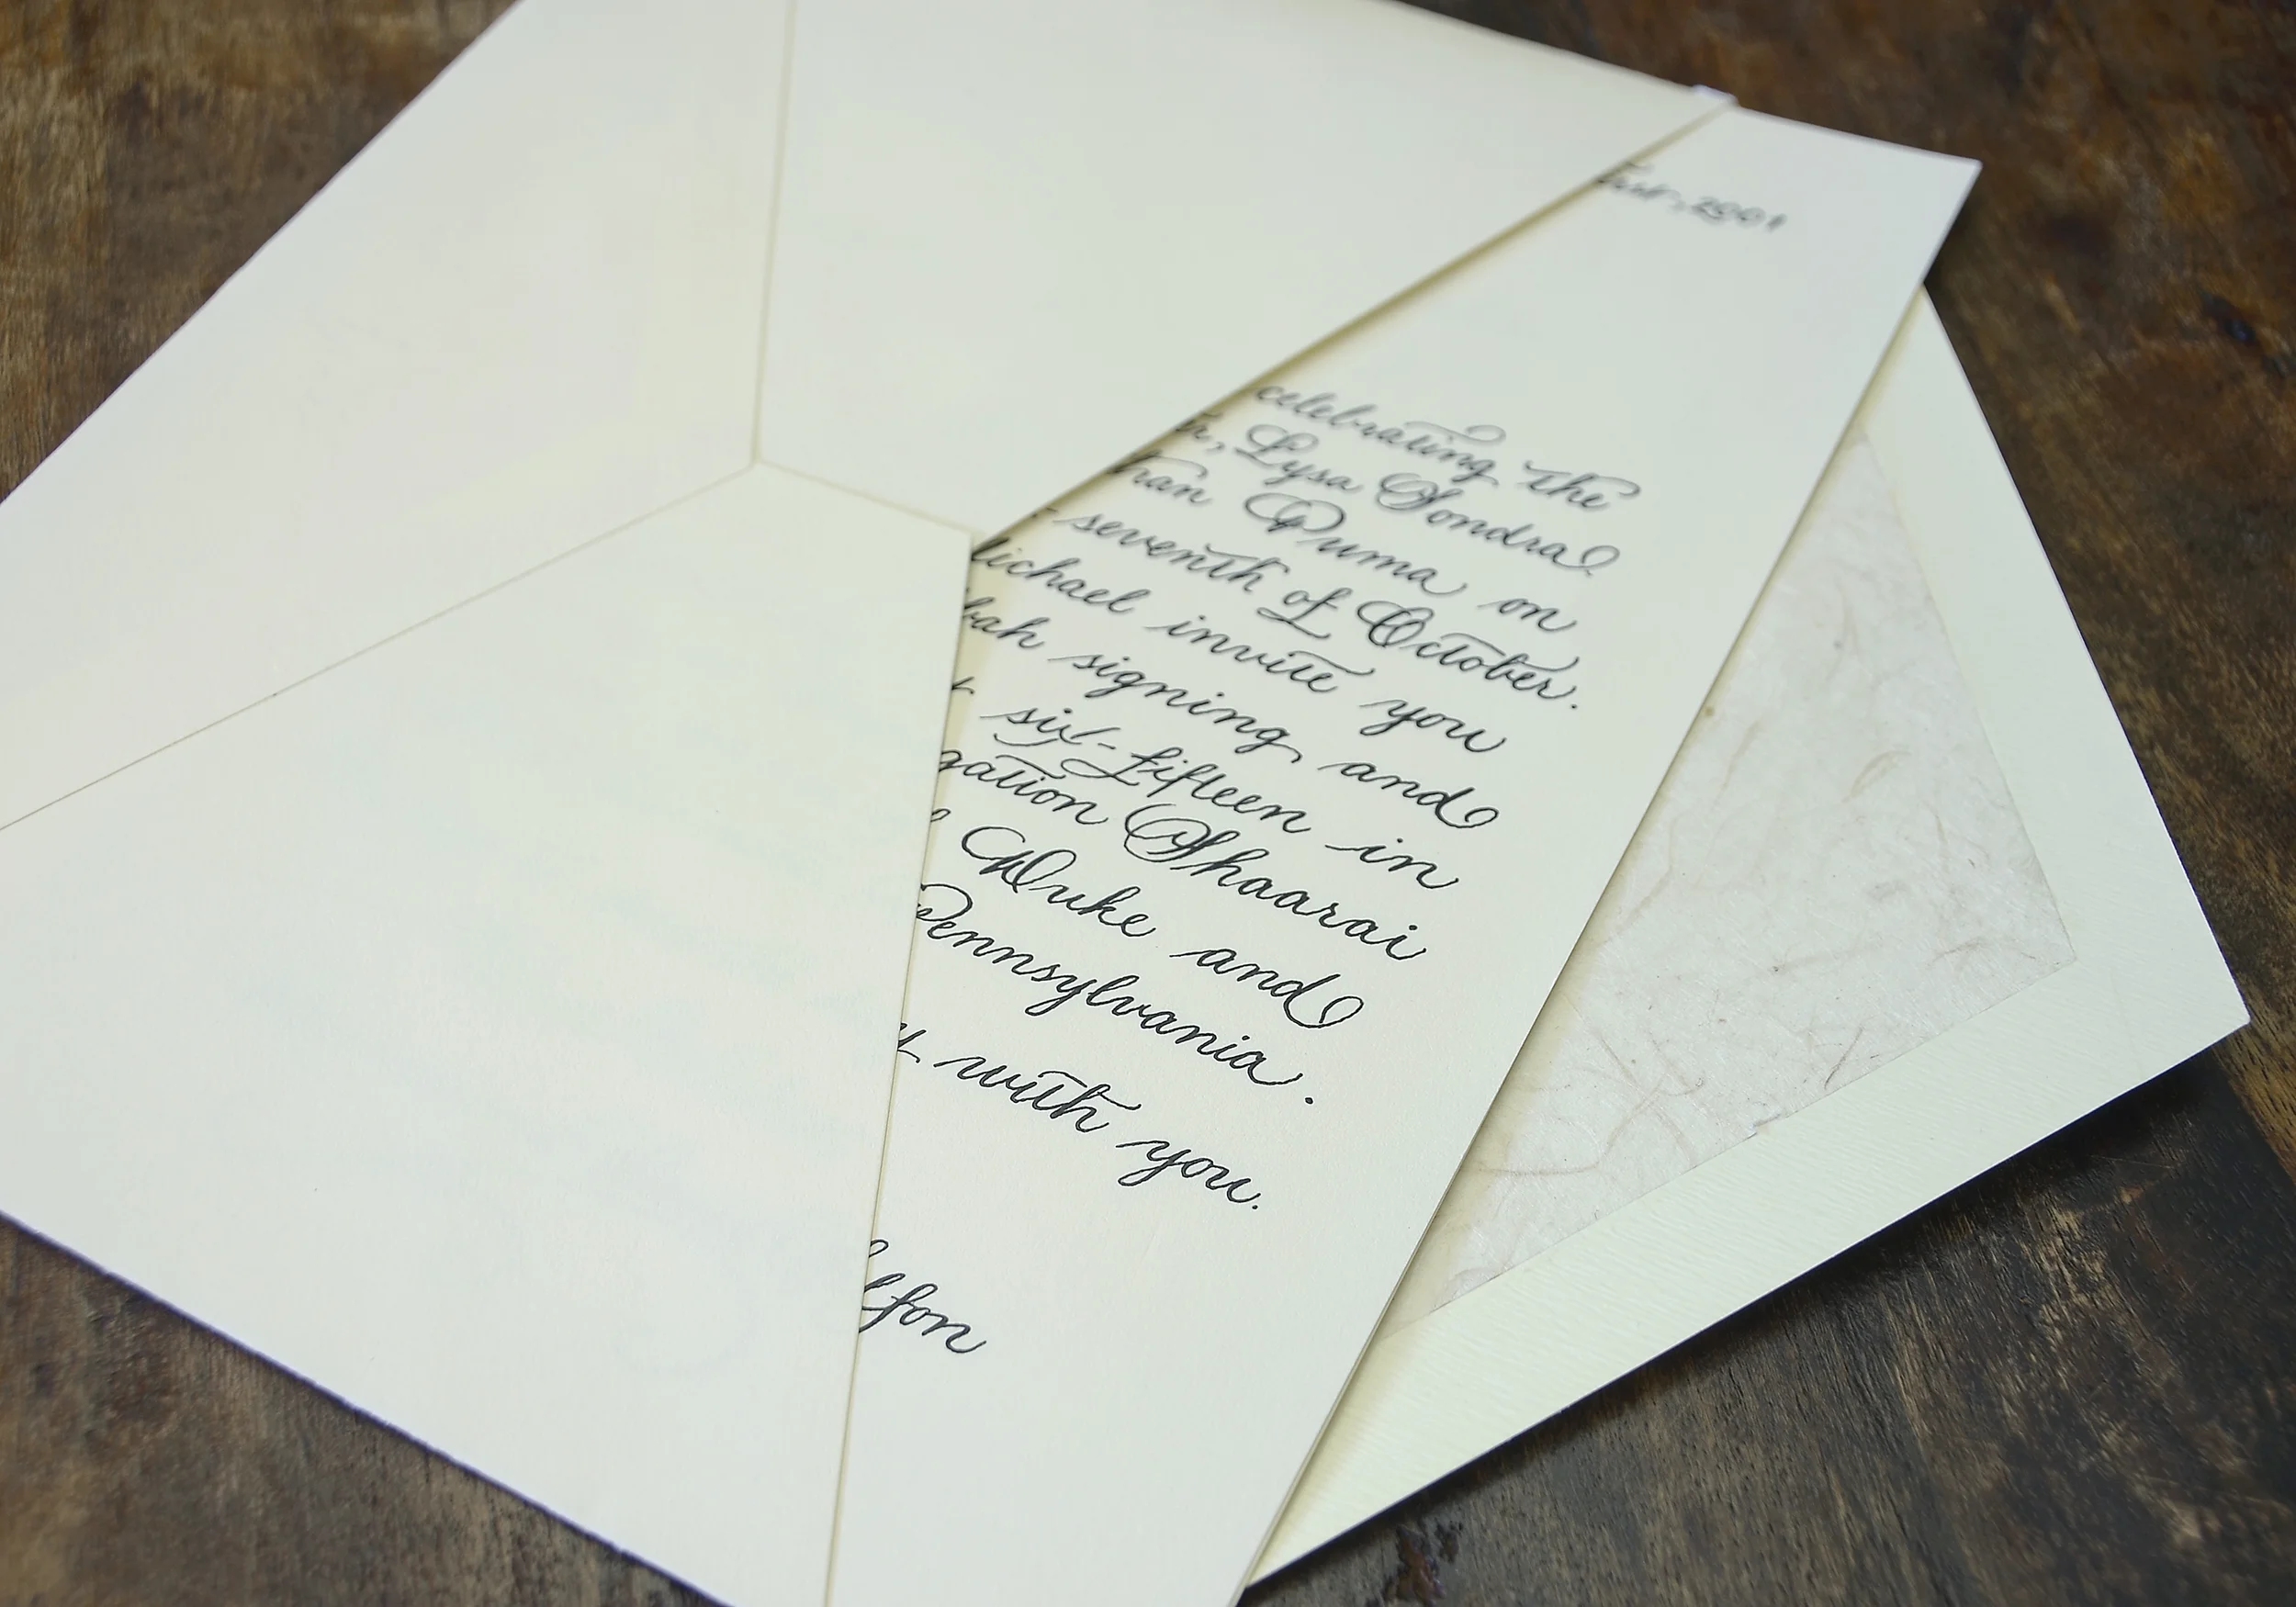 , 2001
celebrating the
Lysa Sondra
Puma on
seventh of October.
invite you
signing and
six-fifteen in
Shaarai
Duke and
Pennsylvania.
with you.